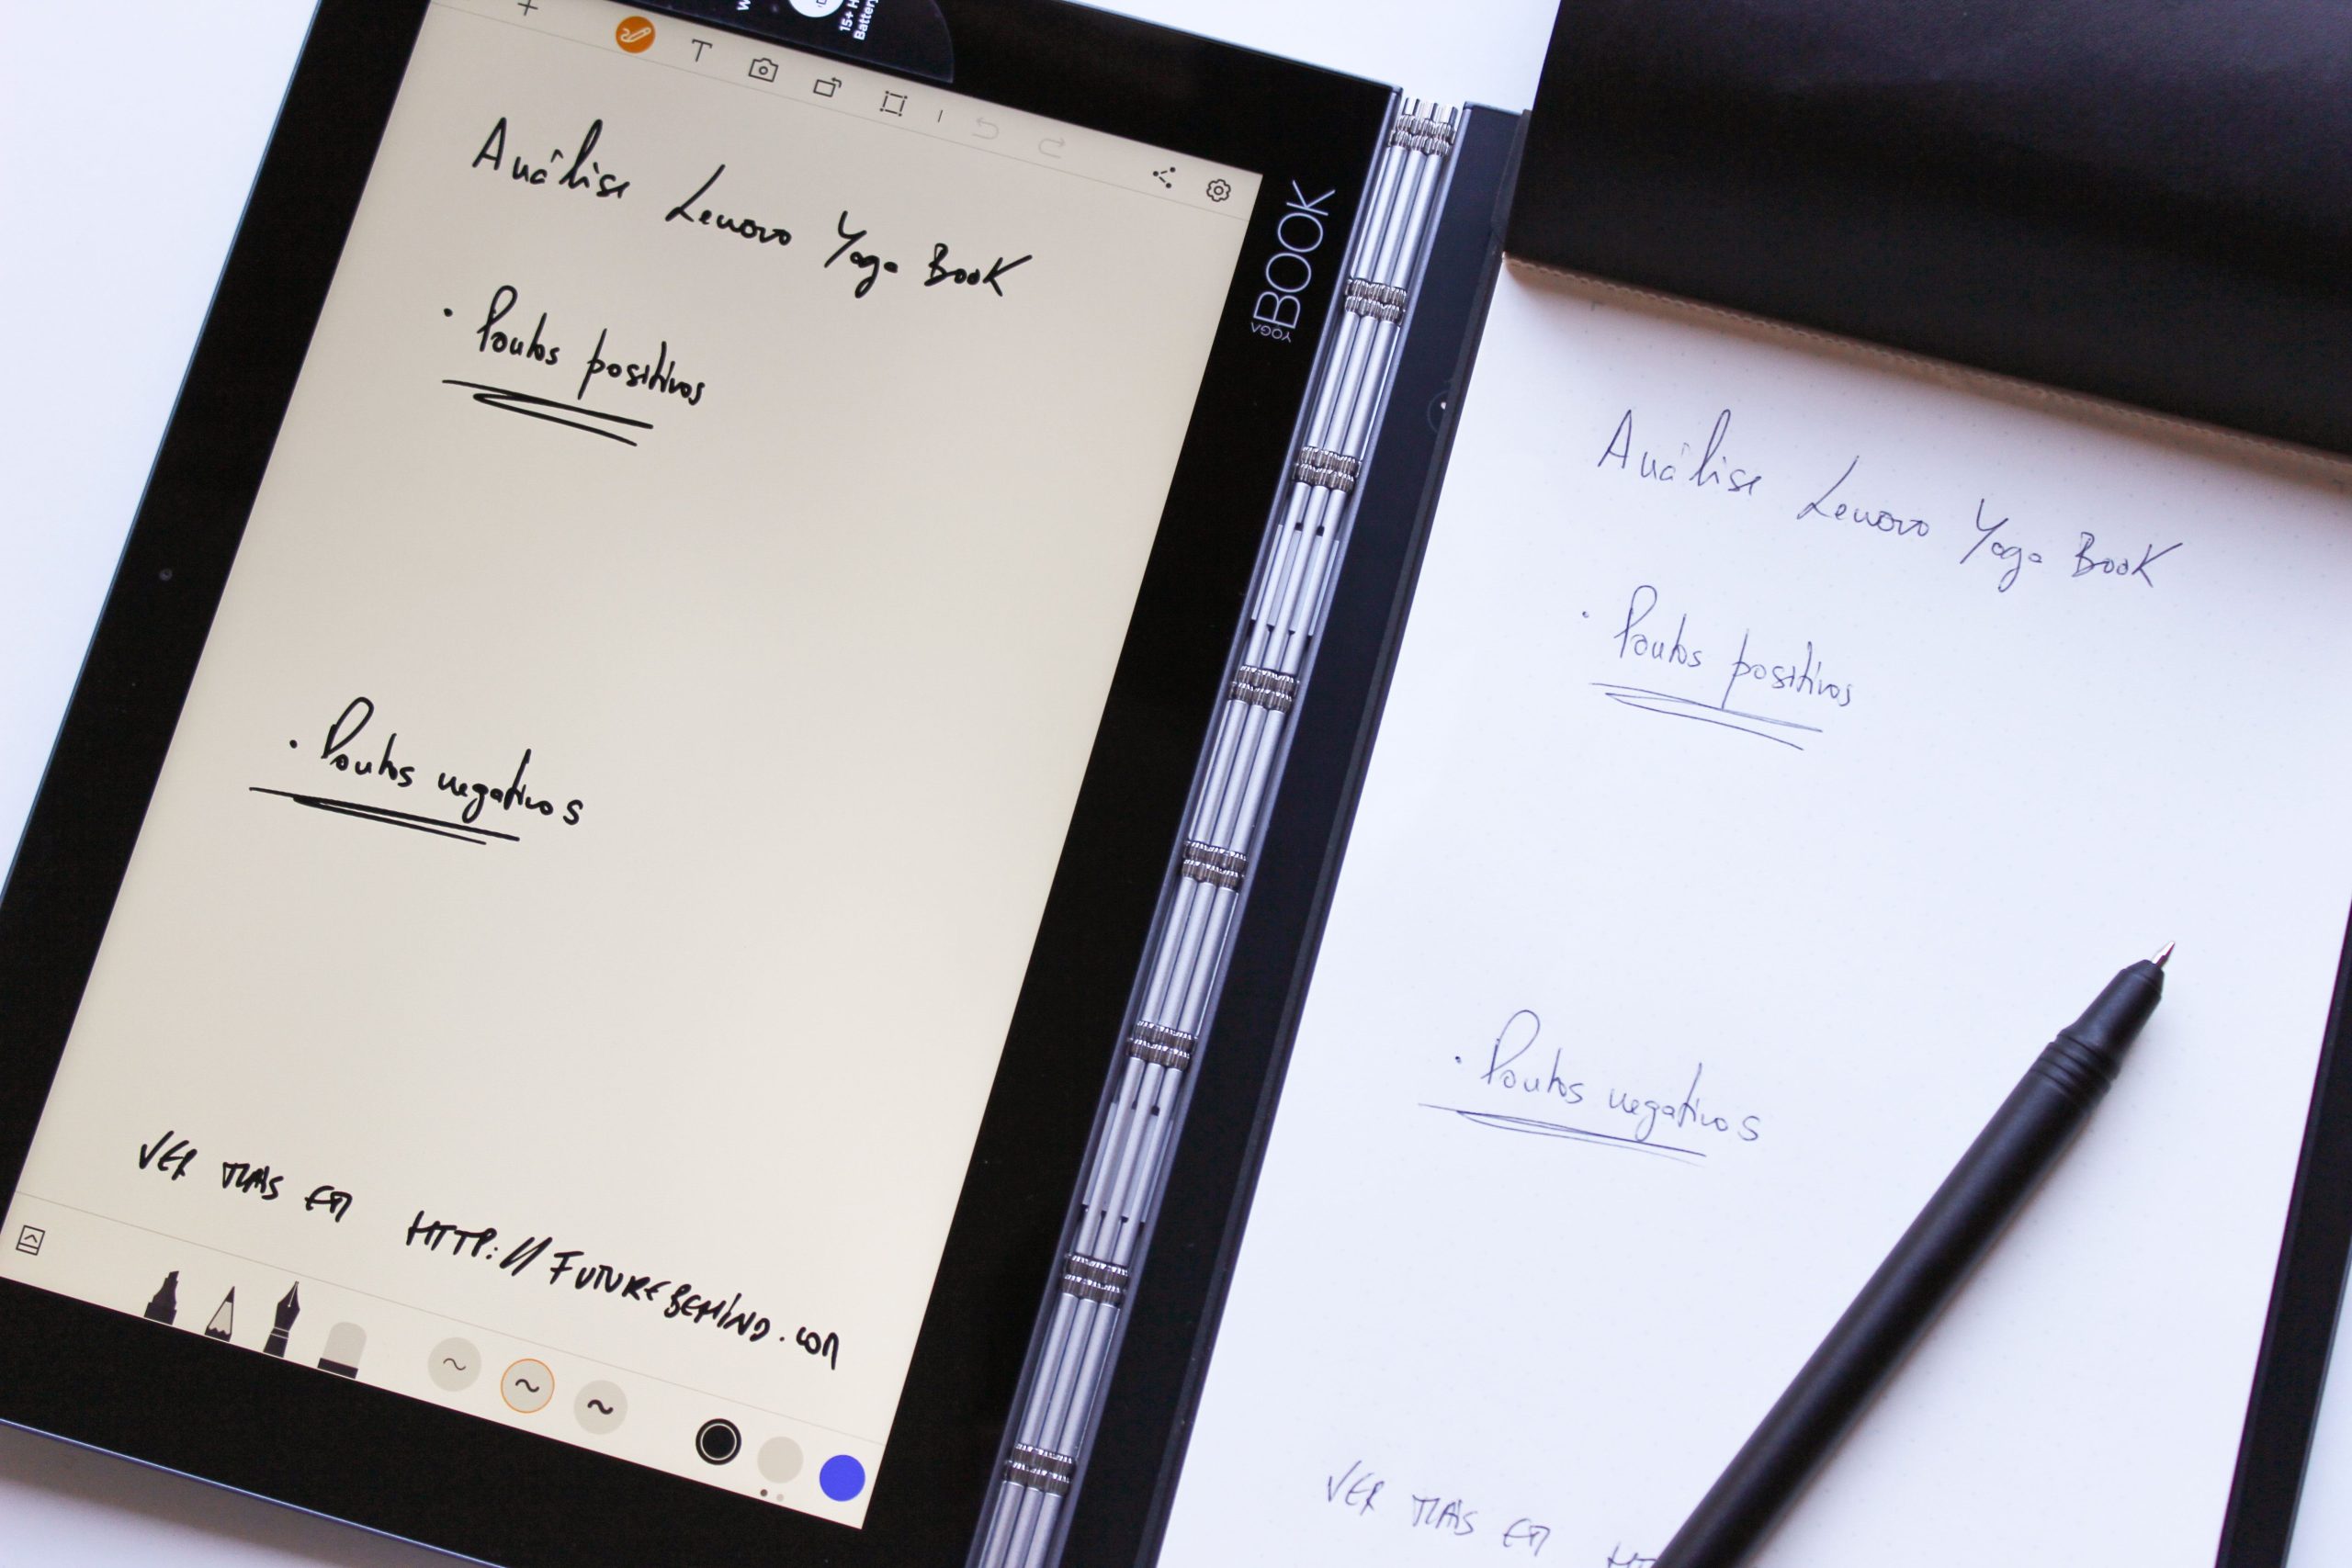 15+ H
Batter
T
Análise Lenovo Yoga Book
• Pontos positivos
• Pontos negativos
VER MAIS EM HTTP://FUTUREBEHIND.COM
YOGA BOOK
Análise Lenovo Yoga Book
• Pontos positivos
• Pontos negativos
VER MAIS EM